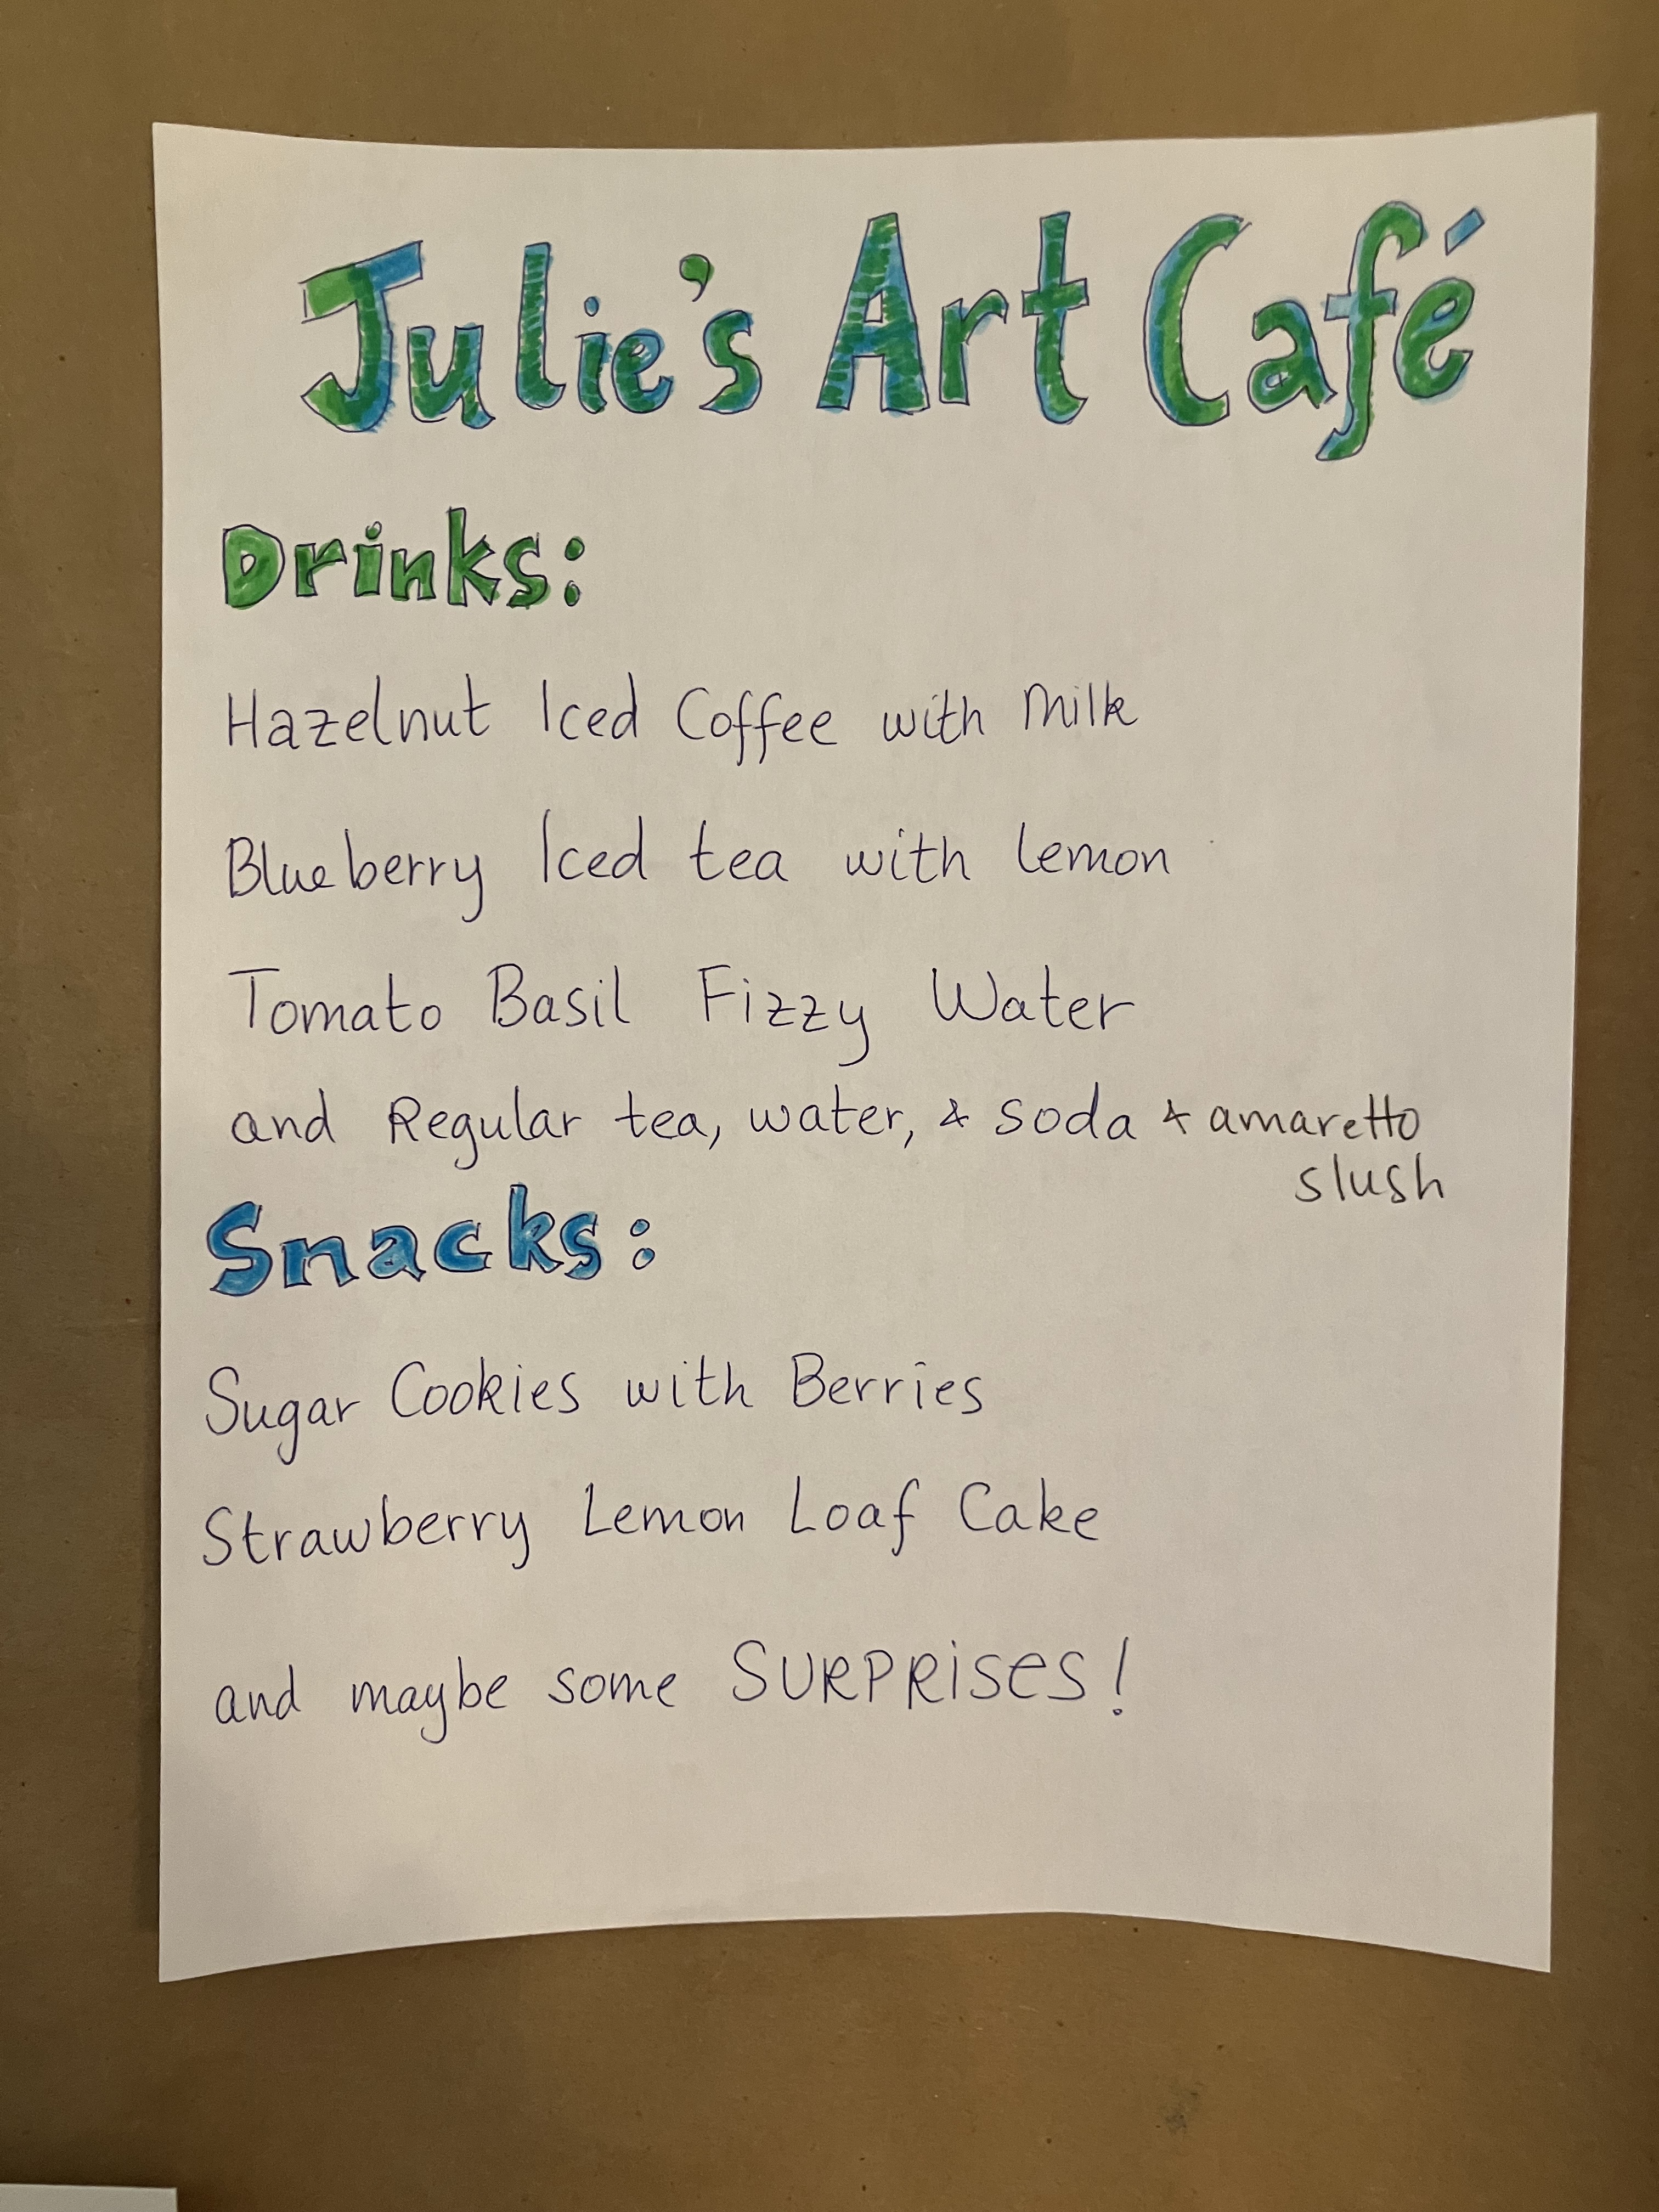 Julie's Art Café
Drinks:
Hazelnut Iced Coffee with Milk
Blueberry Iced tea with lemon
Tomato Basil Fizzy Water
and Regular tea, water, & soda & amaretto
slush
Snacks:
Sugar Cookies with Berries
Strawberry Lemon Loaf Cake
and maybe some SURPRiSES!